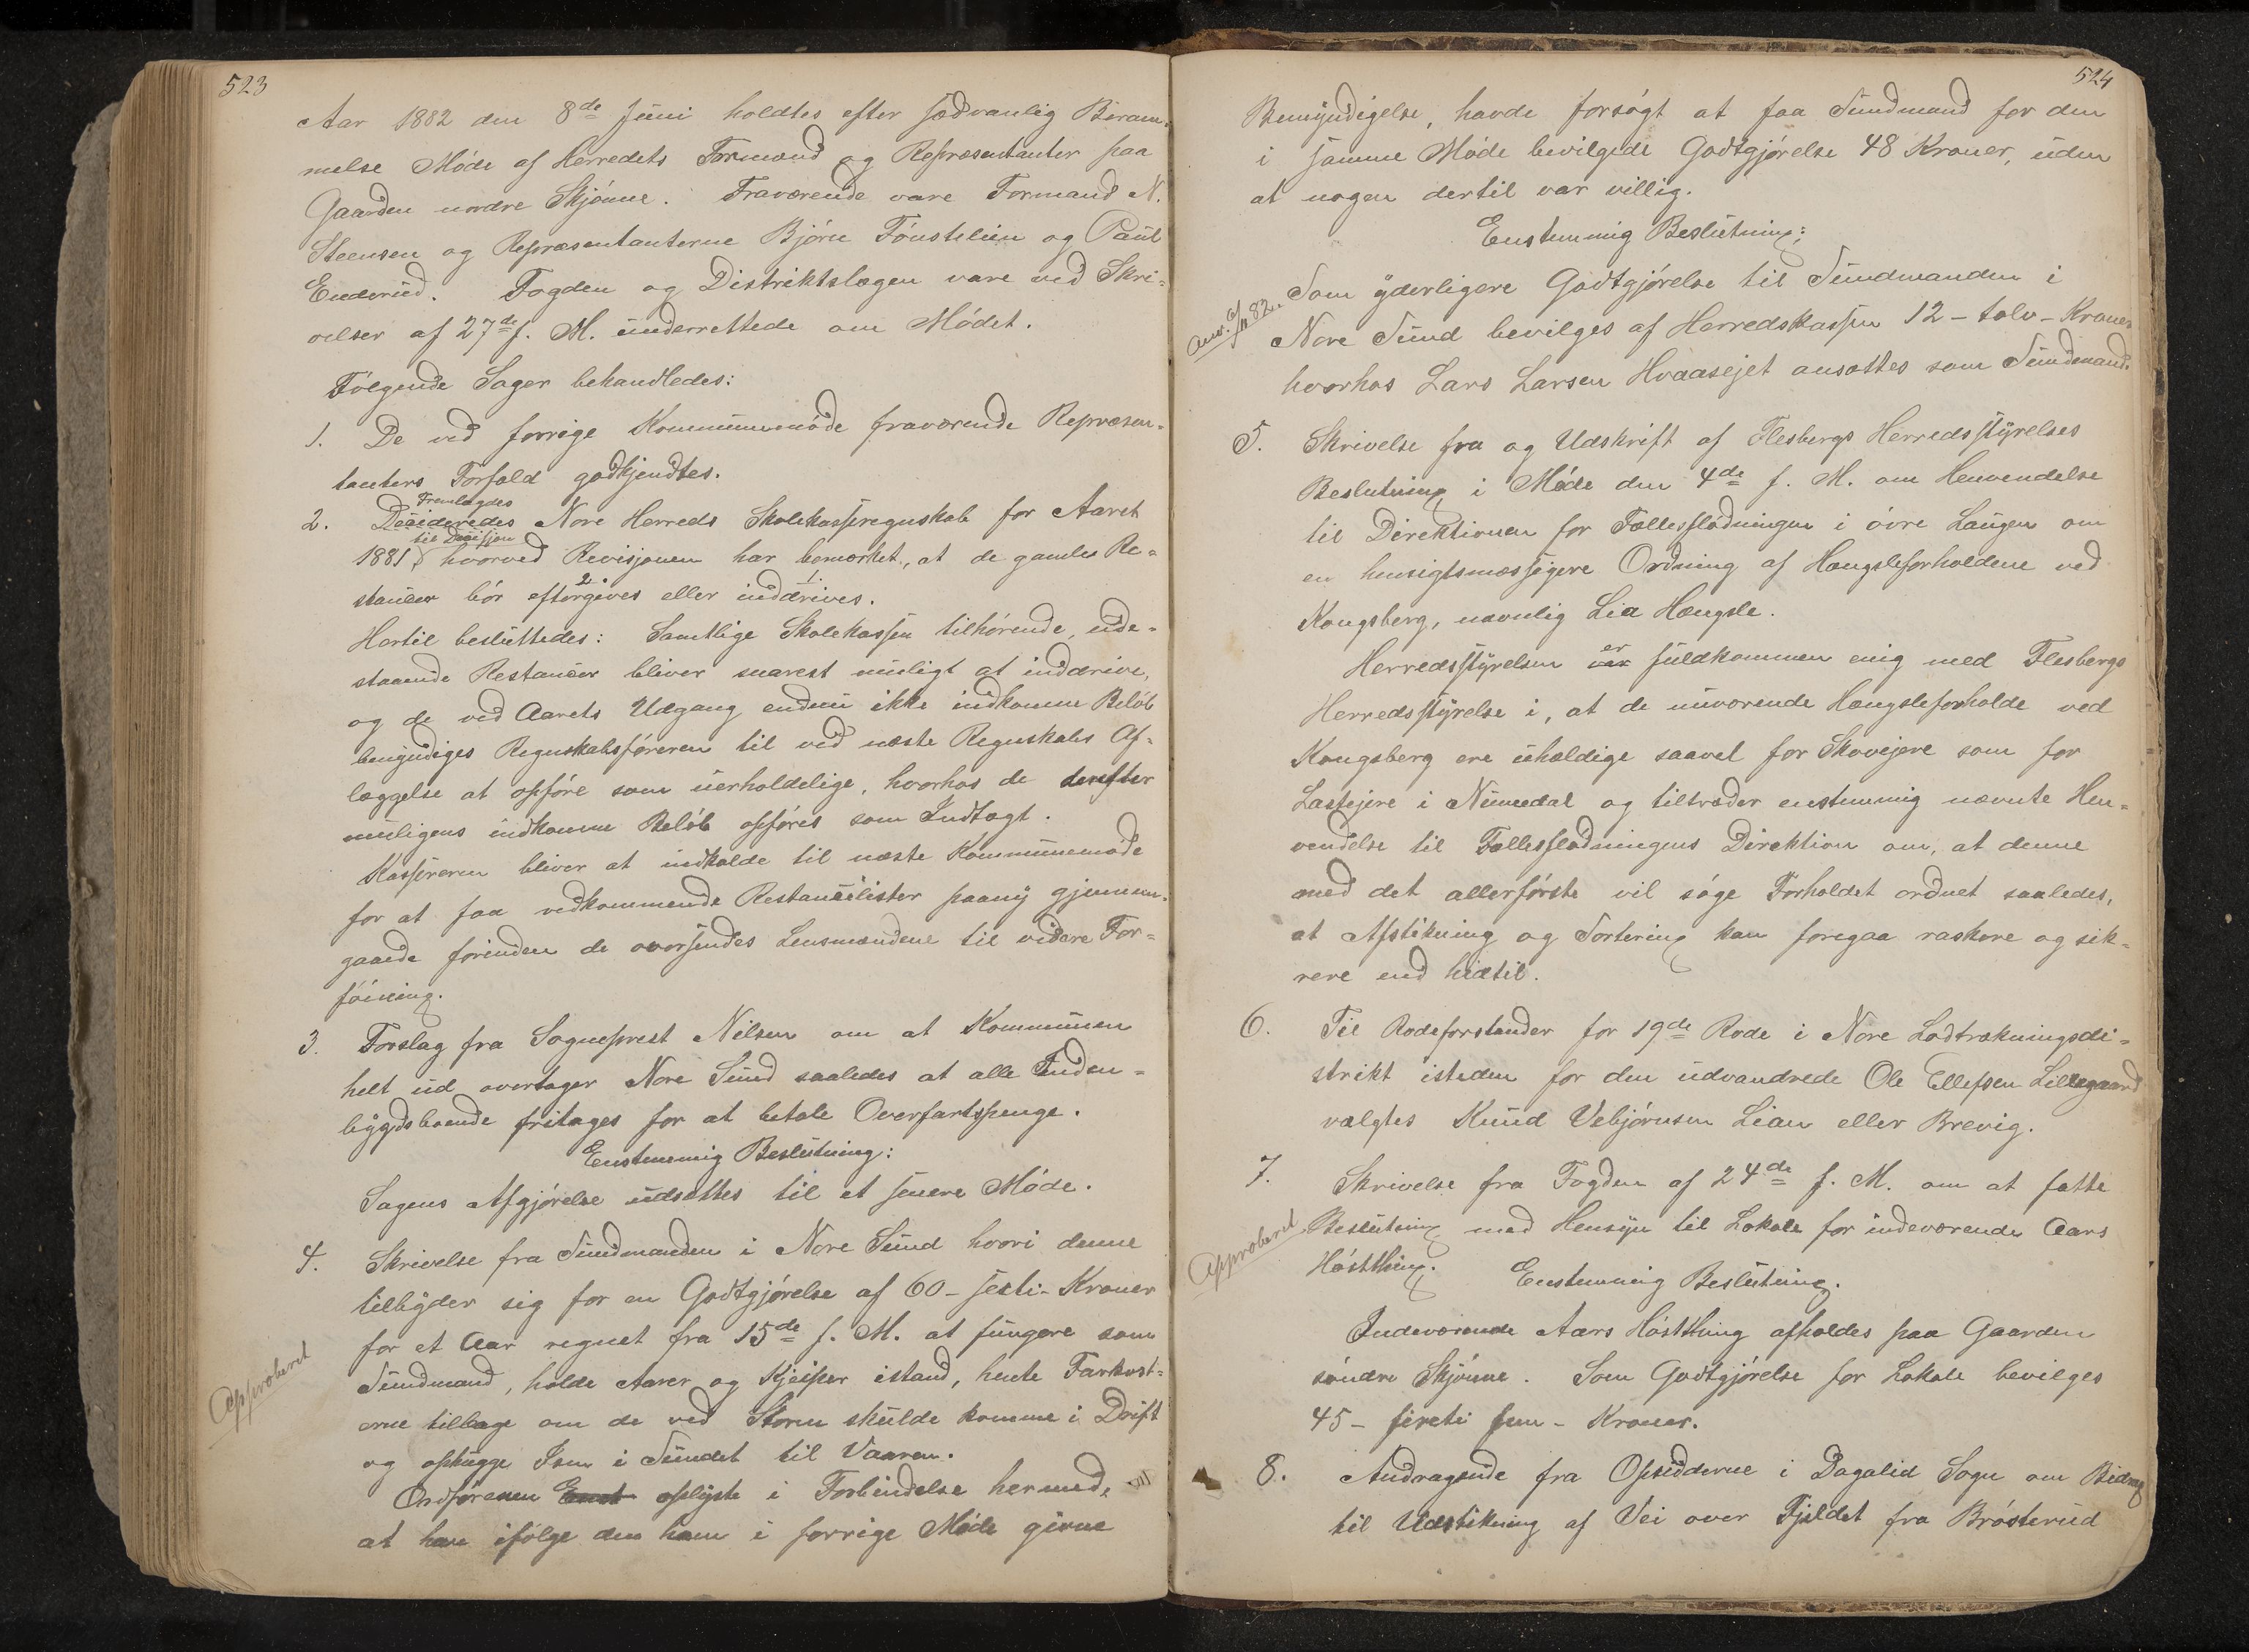 523
Aar 1882 den 8de Juni holdtes efter sædvanlig Beram-
melse Møde af Herredets Formænd og Repræsentanter paa
Gaarden nordre Skjønne. Fraværende vare Formand N.
Steensen og Repræsentanterne Bjørn Fønstelien og Paul
Enderud. Fogden og Distriktslægen vare ved Skri-
velser af 27de f. M. underrettede om Mødet.
Følgende Sager behandledes:
1. De ved forrige Kommunemøde fraværende Repræsen-
tanters Forfald godkjendtes.
Fremlagdes
2. Decideredes Nore Herreds Skolekasseregnskab for Aaret
til Decisjon
1881, hvorved Revisjonen har bemærket, at de gamle Re-
stancer bør eftergives eller inddrives.
Hertil besluttedes: Samtlige Skolekassen tilhørende, ude-
staaende Restancer bliver snarest muligt at inddrive,
og de ved Aarets Udgang endnu ikke indkomne Beløb
bemyndiges Regnskabsføreren til ved næste Regnskabs Af-
læggelse at opføre som uerholdelige, hvorhos de derefter
muligens indkomne Beløb opføres som Indtægt.
Kassereren bliver at indkalde til næste Kommunemøde
for at faa vedkommende Restancelister paany gjennem-
gaaede forinden de oversendes Lensmændene til videre For-
føining.
3. Forslag fra Sogneprest Nilsen om at Kommunen
helt ud overtager Nore Sund saaledes at alle Inden-
bygdsboende fritages for at betale Overfartspenge.
Enstemmig Beslutning:
Sagens Afgjørelse udsættes til et senere Møde.
4. Skrivelse fra Sundmanden i Nore Sund hvori denne
tilbyder sig for en Godtgjørelse af 60 - sexti - Kroner
for et Aar regnet fra 15de f. M. at fungere som
Approberet
Sundmand, holde Aarer og Kjeiper istand, hente Farkost-
erne tilbage om de ved Storm skulde komme i Drift
og ophugge Isen i Sundet til Vaaren.
Ordføreren Enst oplyste i Forbindelse hermed,
at han ifølge den ham i forrige Møde givne
524
Bemyndigelse, havde forsøgt at faa Sundmand for den
i samme Møde bevilgede Godtgjørelse 48 Kroner, uden
at nogen dertil var villig.
Enstemmig Beslutning:
Som yderligere Godtgjørelse til Sundmanden i
Nore Sund bevilges af Herredskassen 12 - tolv - Kroner
hvorhos Lars Larsen Hvaasejet ansættes som Sundmand.
5. Skrivelse fra og Udskrift af Flesbergs Herredsstyrelses
Beslutning i Møde den 4de f. M. om Henvendelse
til Direktionen for Fællesflødningen i øvre Laugen om
en hensigtsmæssigere Ordning af Hængsleforholdene ved
Kongsberg, navnlig Lia Hængsle.
er
Herredsstyrelsen var fuldkommen enig med Flesbergs
Herredsstyrelse i, at de nuværende Hængsleforholde ved
Kongsberg ere uheldige saavel for Skovejere som for
Lastejere i Numedal og tiltræder enstemmig nævnte Hen-
vendelse til Fællesflødningens Direktion om, at denne
med det allerførste vil søge Forholdet ordnet saaledes,
at Afstikning og Sortering kan foregaa raskere og sik-
rere end hidtil.
6. Til Rodeforstander for 19de Rode i Nore Lodtrækningsdi-
strikt isteden for den udvandrede Ole Ellefsen Lillegaard
valgtes Knud Vebjørnsen Lian eller Brevig.
7. Skrivelse fra Fogden af 24de f. M. om at fatte
Approberet
Beslutning med Hensyn til Lokale for indeværende Aars
Høstthing.
Enstemmig Beslutning.
Indeværende Aars Høstthing afholdes paa Gaarden
søndre Skjønne. Som Godtgjørelse for Lokale bevilges
45 - fireti fem - Kroner.
8. Andragende fra Opsidderne i Dagalid Sogn om Bidrag
til Udstikning af Vei over Fjeldet fra Brøsterud